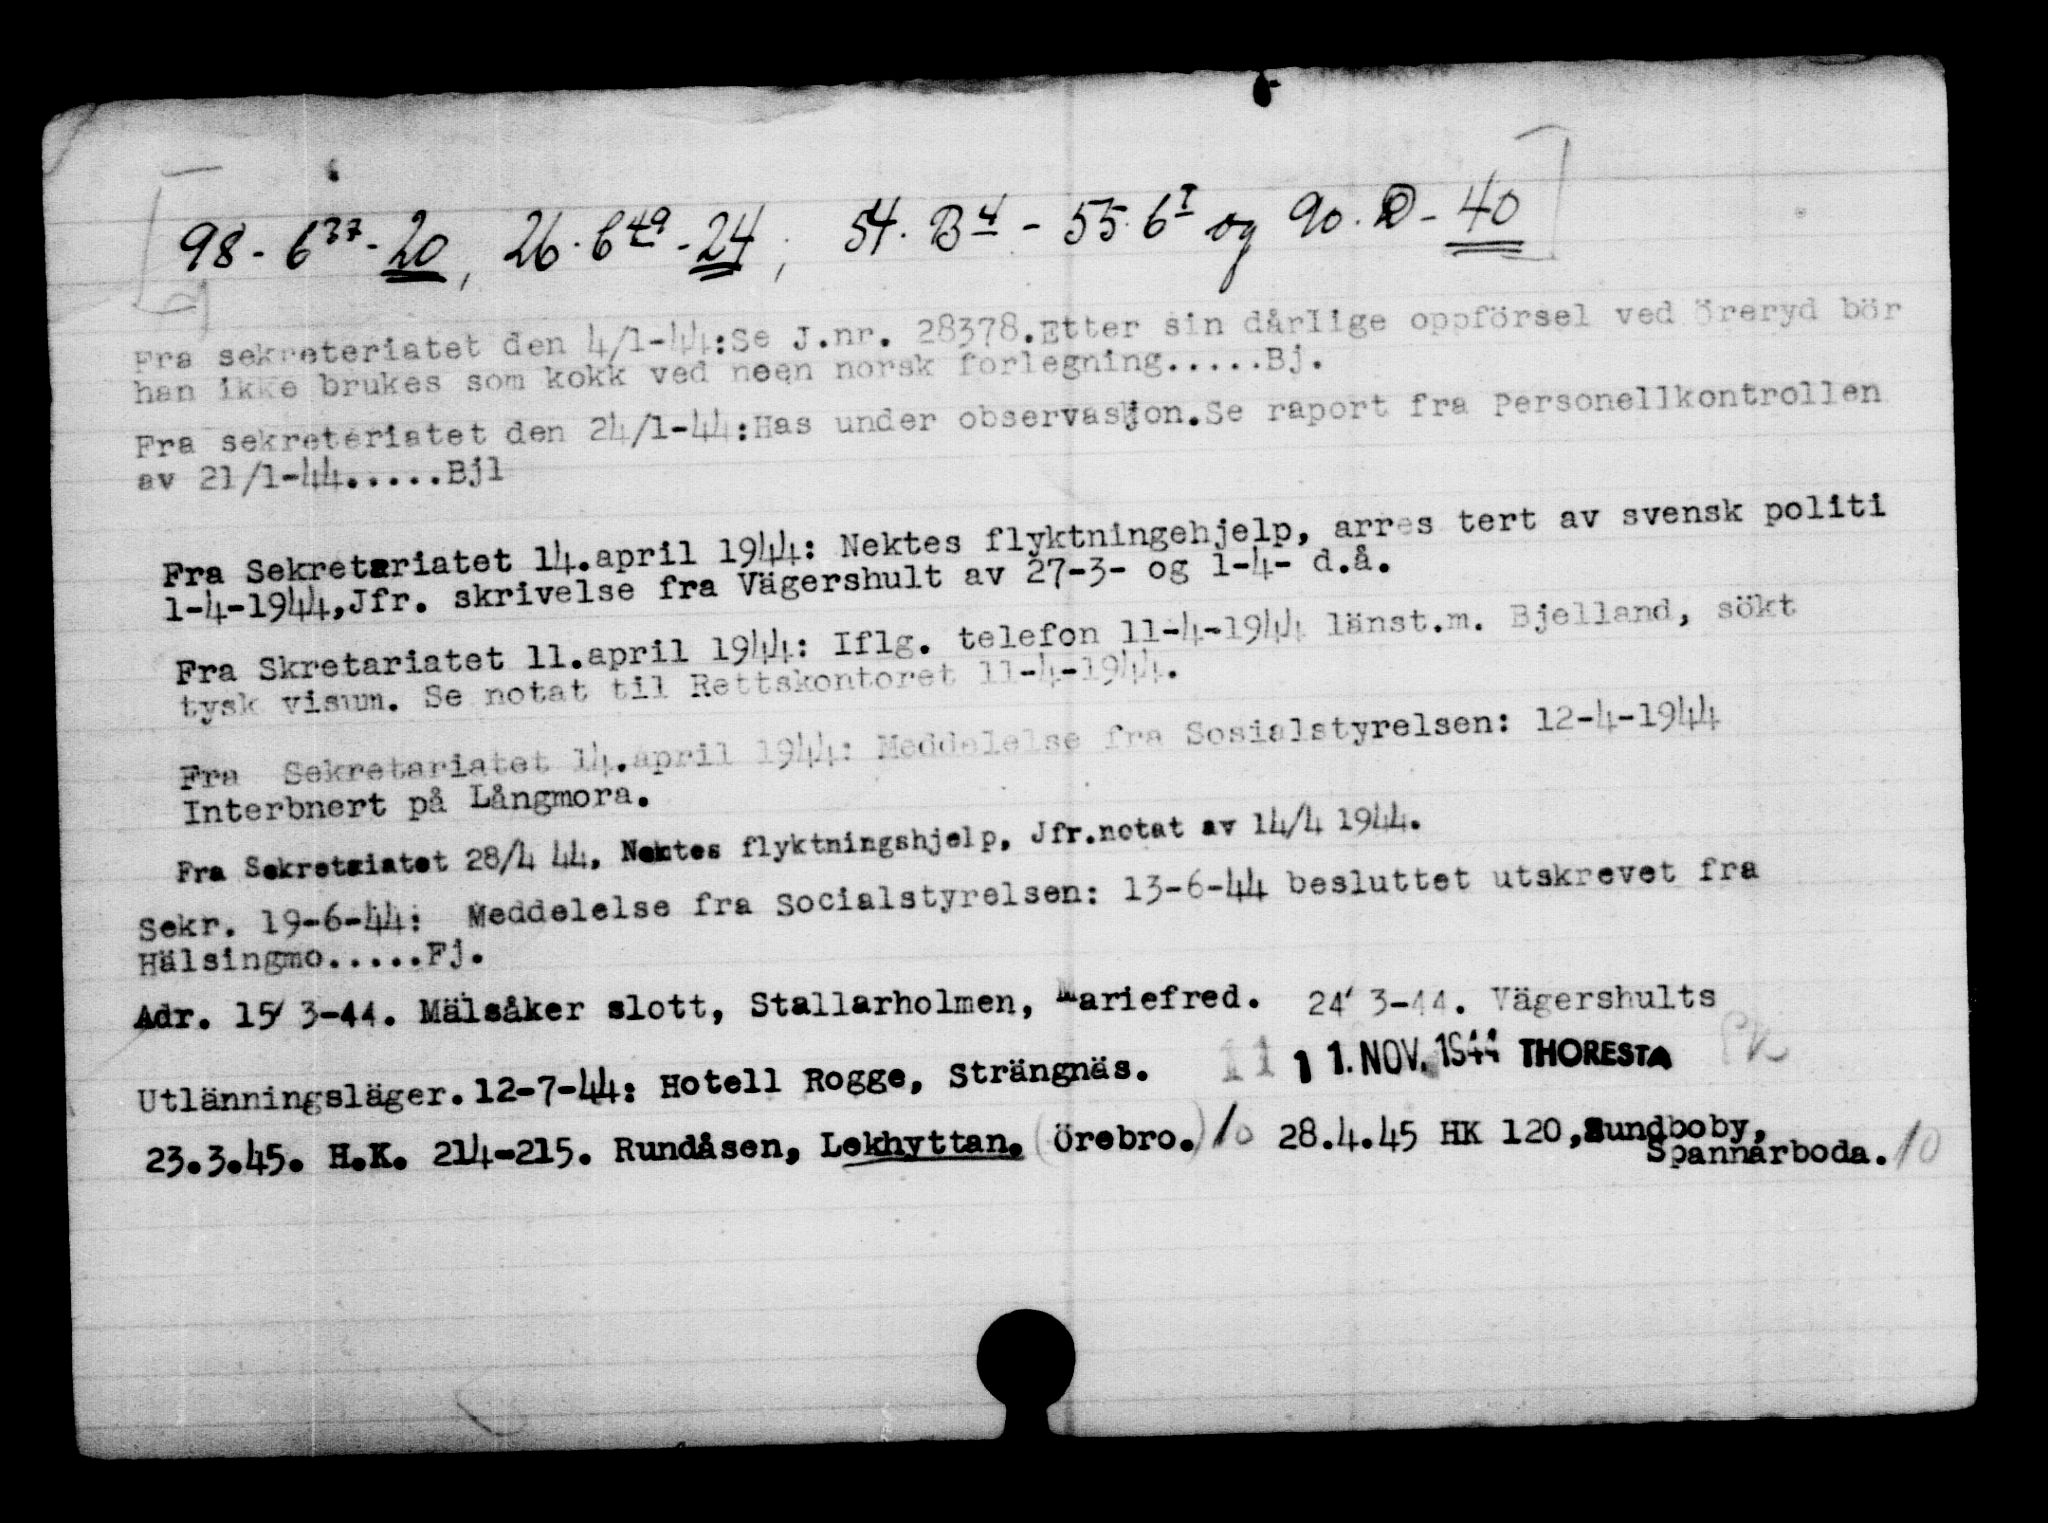 98 - 6³⁷ - 20, 26. 6ᵗᵃ - 24, 54. B⁴ - 55. 6ᴵ og 90. D - 40
Fra sekreteriatet den 4/1-44:Se J.nr. 28378.Etter sin dårlige oppförsel ved Öreryd bör
han ikke brukes som kokk ved noen norsk forlegning.....Bj.
Fra sekreteriatet den 24/1-44:Has under observasjon.Se raport fra Personellkontrollen
av 21/1-44.....Bjl
Fra Sekretariatet 14.april 1944: Nektes flyktningehjelp, arres tert av svensk politi
1-4-1944,Jfr. skrivelse fra Vägershult av 27-3- og 1-4- d.å.
Fra Skretariatet 11.april 1944: Iflg. telefon 11-4-1944 länst.m. Bjelland, sökt
tysk visum. Se notat til Rettskontoret 11-4-1944.
Fra Sekretariatet 14.april 1944: Meddelelse fra Sosialstyrelsen: 12-4-1944
Interbnert på Långmora.
Fra Sekretaiatet 28/4 44, Nektes flyktningshjelp, Jfr.notat av 14/4 1944.
Sekr. 19-6-44: Meddelelse fra Socialstyrelsen: 13-6-44 besluttet utskrevet fra
Hälsingmo.....Fj.
Adr. 15/ 3-44. Mälsåker slott, Stallarholmen, Mariefred. 24/ 3-44. Vägershults
Utlänningsläger. 12-7-44: Hotell Rogge, Strängnäs. 11 1 1. NOV. 1944 THORESTA
23.3.45. H.K. 214-215. Rundåsen, Lekhyttan. (Örebro.) 10 28.4.45 HK 120, Sundboby,
Spannarboda. 10